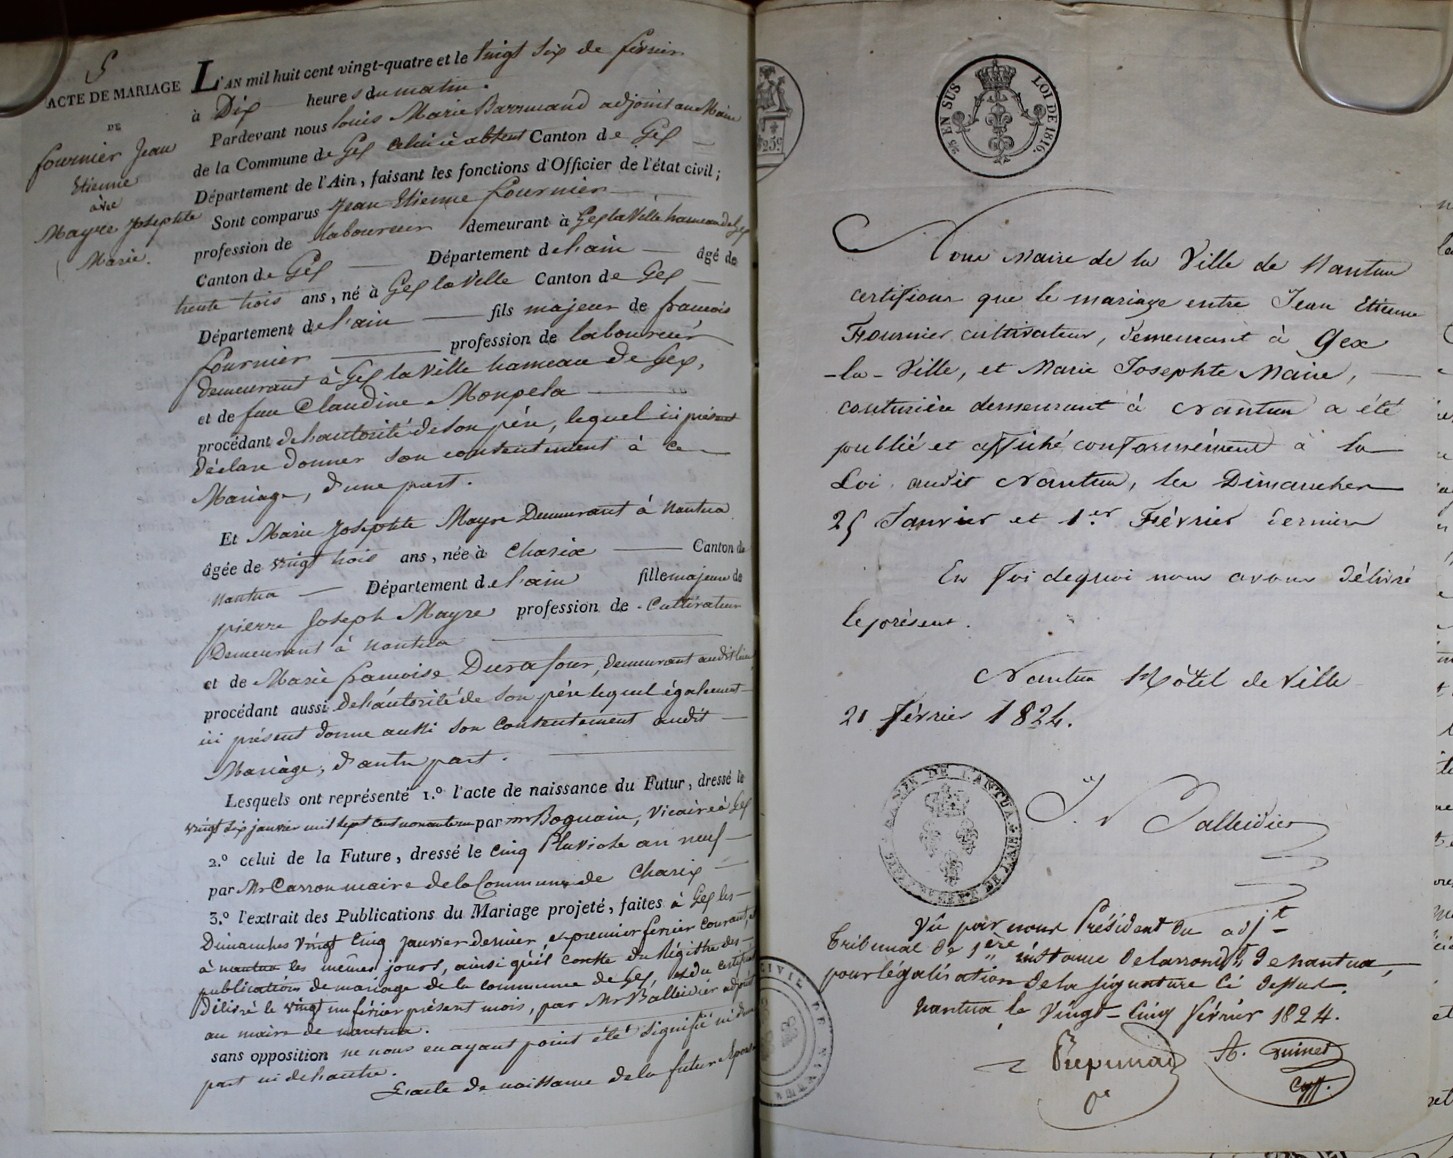 5
ACTE DE MARIAGE
DE
fournier Jean
Etienne
avec
Mayre Josephte
Marie.
L'AN mil huit cent vingt-quatre et le vingt six de févrir
à Dix heures du matin.
Pardevant nous louis Marie Barruand adjoint au Maire
de la Commune de Gex celui ci absent Canton de Gex
Département de l'Ain, faisant les fonctions d'Officier de l'état civil;
Sont comparus Jean Etienne fournier
profession de laboureur demeurant à Gex la Ville hameau de Gex
Canton de Gex Département de l'ain âgé de
trente trois ans, né à Gex la Ville Canton de Gex
Département de l'ain fils majeur de francois
fournier profession de laboureur
demeurant à Gex la Ville hameau de Gex,
et de feue Claudine Monpela
procédant de l'autorité de son père, lequel ici présent
déclare donner son contentement à ce
Mariage, d'une part.
Et Marie Josephte Mayre Demeurant à Nantua
âgée de vingt trois ans, née à Charix Canton de
Nantua Département de l'ain fille majeure de
pierre Joseph Mayre profession de Cultivateur
Demeurant à Nantua
et de Marie francoise Durafour, demeurant audit lieu
procédant aussi de l'autorité de son père lequel également
ici présent donne aussi son contentement audit
Mariage, d'autre part.
Lesquels ont représenté 1.º l'acte de naissance du Futur, dressé le
vingt six janvier mil sept cent nonante par mr Boquain, Vicaire à Gex
2.º celui de la Future, dressé le Cinq Pluviose an neuf
par Mr Carron maire de la Commune de Charix
3.º l'extrait des Publications du Mariage projeté, faites à Gex les
Dimanches vingt Cinq janvier dernier, et premier férier courant, et
à nantua les mêmes jours, ainsi qu'il conste du Régithe des
publications de mariage de la commune de Gex, et du certificat
Délivré le vingt un férier présent mois, par Mr Balleidier adjoint
au maire de nantua.
sans opposition ne nous en ayant point été signifié ni d'une
part ni de l'autre.
L'acte de naissance de la future Epouse
25 EN SUS LOI DE 1816.
Nous Maire de la Ville de Nantua
certifions que le mariage entre Jean Etienne
Fournier cultivateur, demeurant à Gex
-la-Ville, et Marie Josephte Maire,
couturière demeurant à Nantua a été
publié et affiché conformément à la
Loi audit Nantua, les Dimanches
25 Janvier et 1.er Février dernier
En foi de quoi nous avons délivré
le présent.
Nantua Hôtel de Ville
21 février 1824.
MAIRIE DE NANTUA
J. Balleidier
adjt
Vu par nous Président du
Tribunal de 1ere instance de l'arrondt de nantua,
pour légalisation de la signature ci dessus.
Nantua le Vingt-Cinq février 1824.
A. Guinet